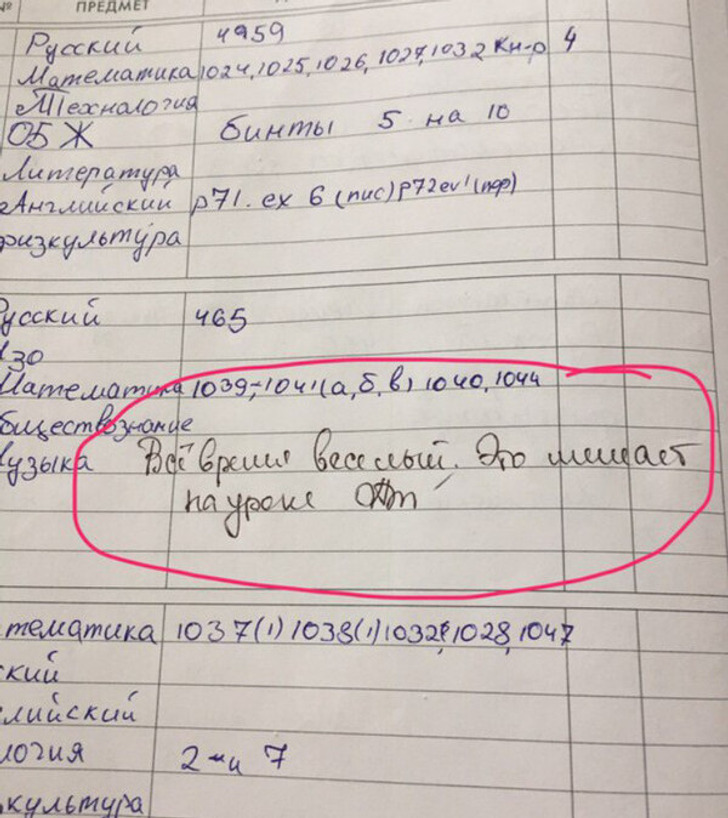 № ПРЕДМЕТ
Русский 4959
Математика 1024, 1025, 1026, 1027, 1032 Кн-р 4
Технология
ОБЖ бинты 5 на 10
Литература
Английский p71. ex 6 (пис) p72 ex1 (пер)
физкультура
Русский 465
ИЗО
Математика 1039, 1041(а, б, в) 1040, 1044
бществознание
узыка Всё время веселый. Это мешает
на уроке
тематика 1037(1) 1038(1) 1032, 1028, 1047
ский
лийский
логия 2 и 7
культура